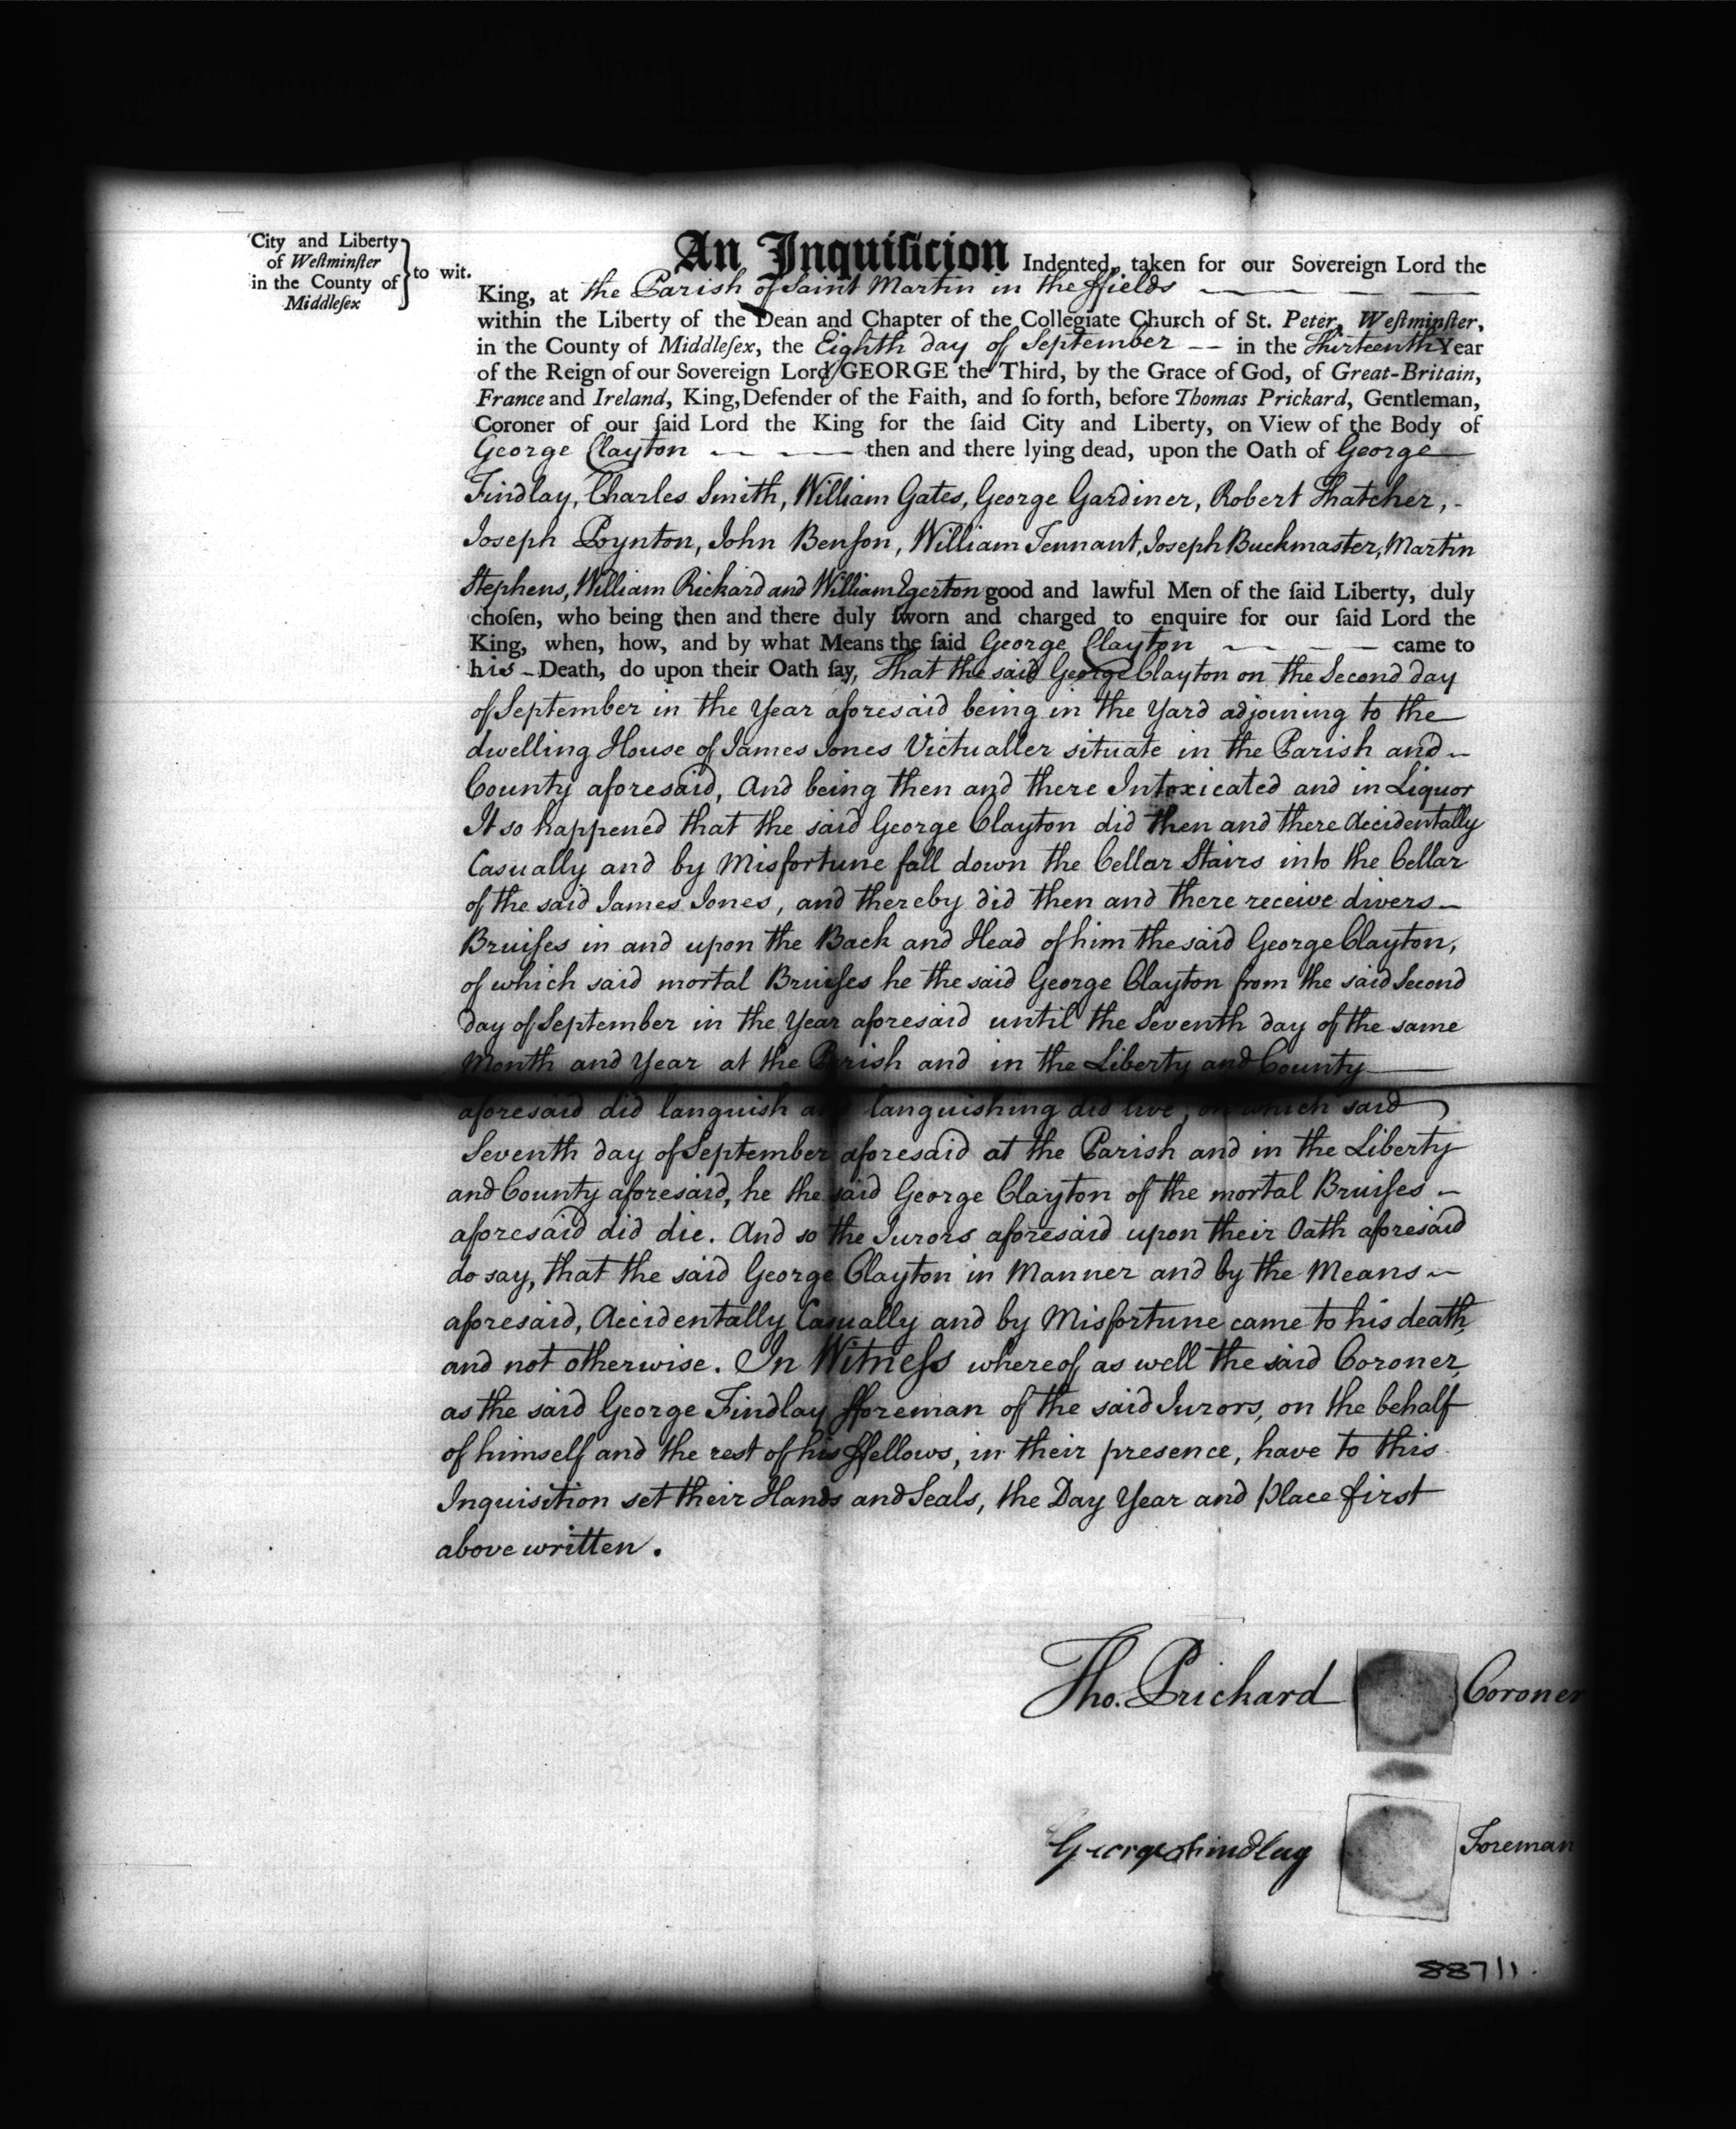 City and Liberty
of Weſtminſter
in the County of
Middleſex
to wit.
An Inquiſicion Indented, taken for our Sovereign Lord the
King, at the Parish of Saint Martin in the ffields
within the Liberty of the Dean and Chapter of the Collegiate Church of St. Peter, Weſtminſter,
in the County of Middleſex, the Eighth day of September in the Thirteenth Year
of the Reign of our Sovereign Lord GEORGE the Third, by the Grace of God, of Great-Britain,
France and Ireland, King, Defender of the Faith, and ſo forth, before Thomas Prickard, Gentleman,
Coroner of our ſaid Lord the King for the ſaid City and Liberty, on View of the Body of
George Clayton then and there lying dead, upon the Oath of George
Findlay, Charles Smith, William Gates, George Gardiner, Robert Thatcher,
Joseph Poynton, John Benſon, William Tennant, Joseph Buckmaster, Martin
Stephens, William Rickard and William Egerton good and lawful Men of the ſaid Liberty, duly
choſen, who being then and there duly ſworn and charged to enquire for our ſaid Lord the
King, when, how, and by what Means the ſaid George Clayton came to
his Death, do upon their Oath ſay, That the said George Clayton on the Second day
of September in the Year aforesaid being in the Yard adjoining to the
dwelling House of James Jones Victualler situate in the Parish and
County aforesaid, And being then and there Intoxicated and in Liquor
It so happened that the said George Clayton did then and there Accidentally
Casually and by Misfortune fall down the Cellar Stairs into the Cellar
of the said James Jones, and thereby did then and there receive divers
Bruiſes in and upon the Back and Head of him the said George Clayton,
of which said mortal Bruiſes he the said George Clayton from the said Second
day of September in the Year aforesaid until the Seventh day of the same
Month and Year at the Parish and in the Liberty and County
aforesaid did languish and languishing did live, on which said
Seventh day of September aforesaid at the Parish and in the Liberty
and County aforesaid, he the said George Clayton of the mortal Bruiſes
aforesaid did die. And so the Jurors aforesaid upon their Oath aforesaid
do say, that the said George Clayton in Manner and by the Means
aforesaid, Accidentally Casually and by Misfortune came to his death,
and not otherwise. In Witneſs whereof as well the said Coroner,
as the said George Findlay fforeman of the said Jurors, on the behalf
of himself and the rest of his ffellows, in their presence, have to this
Inquisition set their Hands and Seals, the Day Year and place first
above written.
Tho. Prickard Coroner
George Findlay Foreman
887/1.